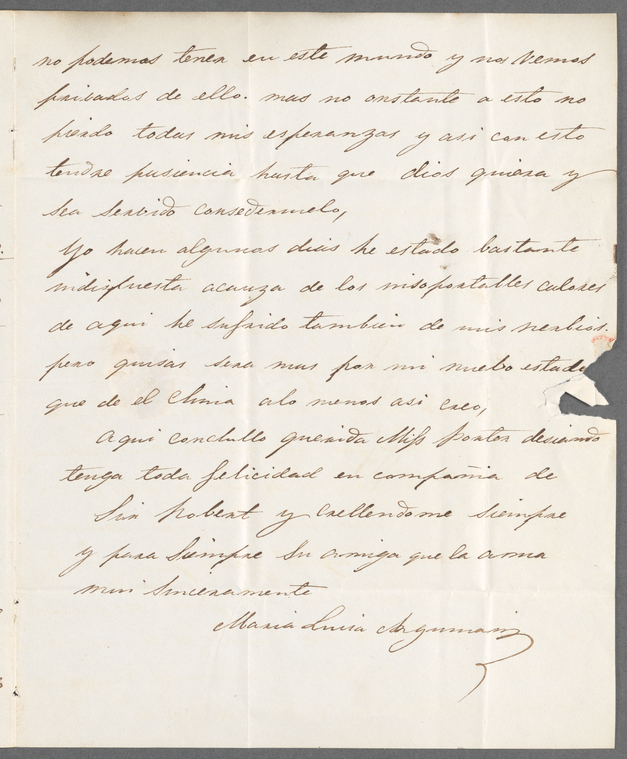 no podemos tener en este mundo y nos vemos
pribados de ello. mas no onstante a esto no
pierdo todas mis esperanzas y asi con esto
tendre pasiencia hasta que dios quiera y
sea servido consedermelo,
Yo hacen algunos dias he estado bastante
indispuesta acauza de los insoportables calores
de aqui he sufrido tambien de mis nerbios.
pero quisas sera mas por mi nuebo estado
que de el Clima alo menos asi creo,
Aqui conclullo querida Miss Porter desiando
tenga toda felicidad en compañia de
Sir Robert y crellendome siempre
y para siempre su amiga que la ama
mui sinceramente
Maria Luisa